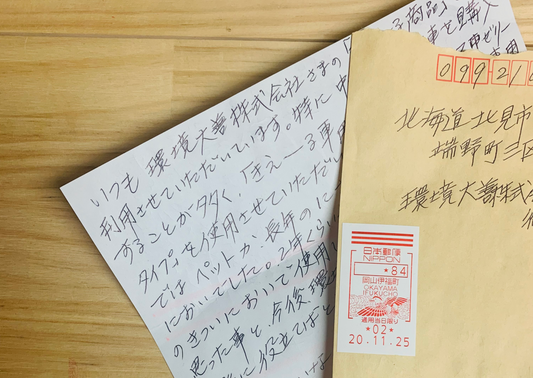 る商品」
車を購入
いつも 環境大善株式会社さまの「
利用させていただいています。特に 中
することが多く、「きえーる車用
タイプ」を使用させていただい
ではペットか、長年のに
においでした。2年くら
のきついにおいで使用
思った事と、今後環
に役立てばと
099-21
北海道北見市
端野町三区
環境大善株式
日本郵便
NIPPON
*84
岡山伊福町
OKAYAMA
IFUKUCHO
適用当日限り
*02*
20.11.25